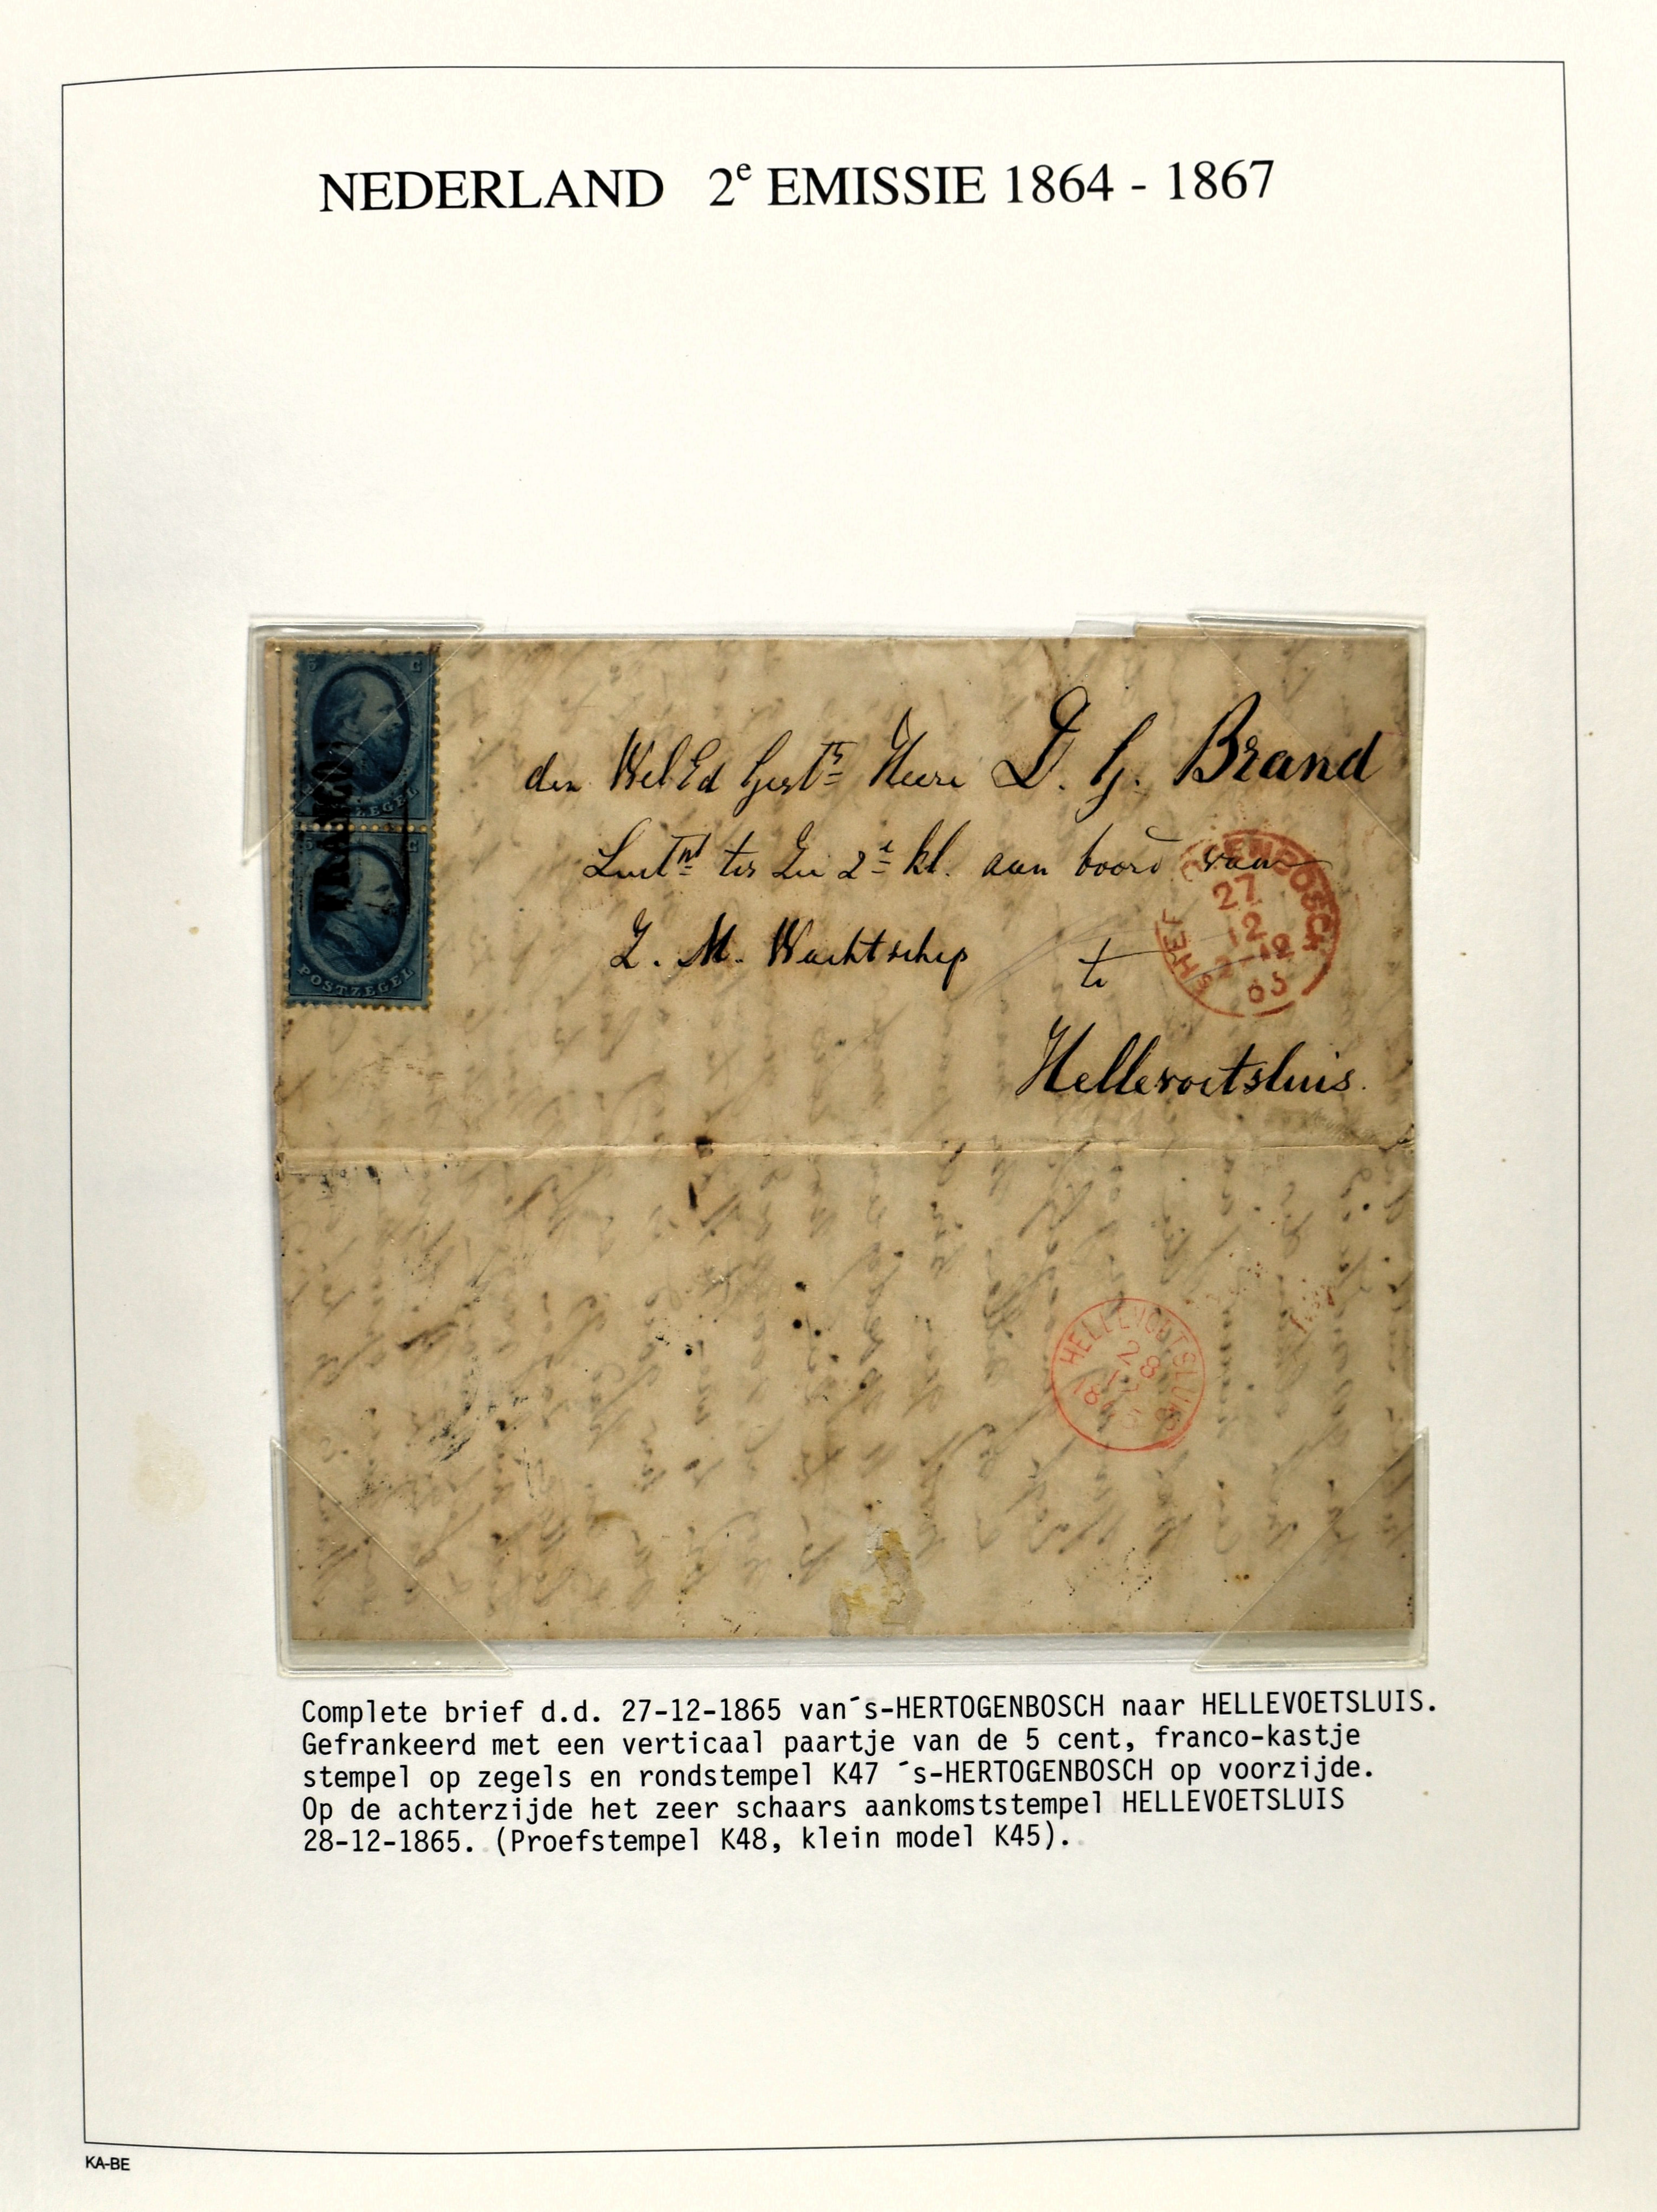 NEDERLAND 2e EMISSIE 1864 - 1867
5 C
FRANCO
ZEGEL
5 C
POSTZEGEL
den WelEd Gestr Heere D. G. Brand
Luitnt ter Zee 2e kl. aan boord van
Z. M. Wachtschip te
Hellevoetsluis.
OGENBOSCH
27
12
65
HELLEVOETSLUIS
28
Complete brief d.d. 27-12-1865 van´s-HERTOGENBOSCH naar HELLEVOETSLUIS.
Gefrankeerd met een verticaal paartje van de 5 cent, franco-kastje
stempel op zegels en rondstempel K47 ´s-HERTOGENBOSCH op voorzijde.
Op de achterzijde het zeer schaars aankomststempel HELLEVOETSLUIS
28-12-1865. (Proefstempel K48, klein model K45).
KA-BE